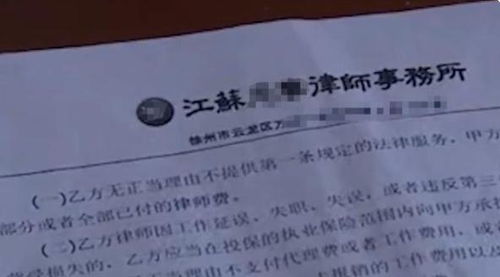 江蘇 律師事務所
徐州市云龙区万
(一)乙方无正当理由不提供第一条规定的法律服务,甲方
部分或者全部已付的律师费。
(二)乙方律师因工作延误、失职、失误,或者违反第三
损失的,乙方应当在投保的执业保险范围内向甲方承
正当理由不支付代理费或者工作费用,或
工作费用以